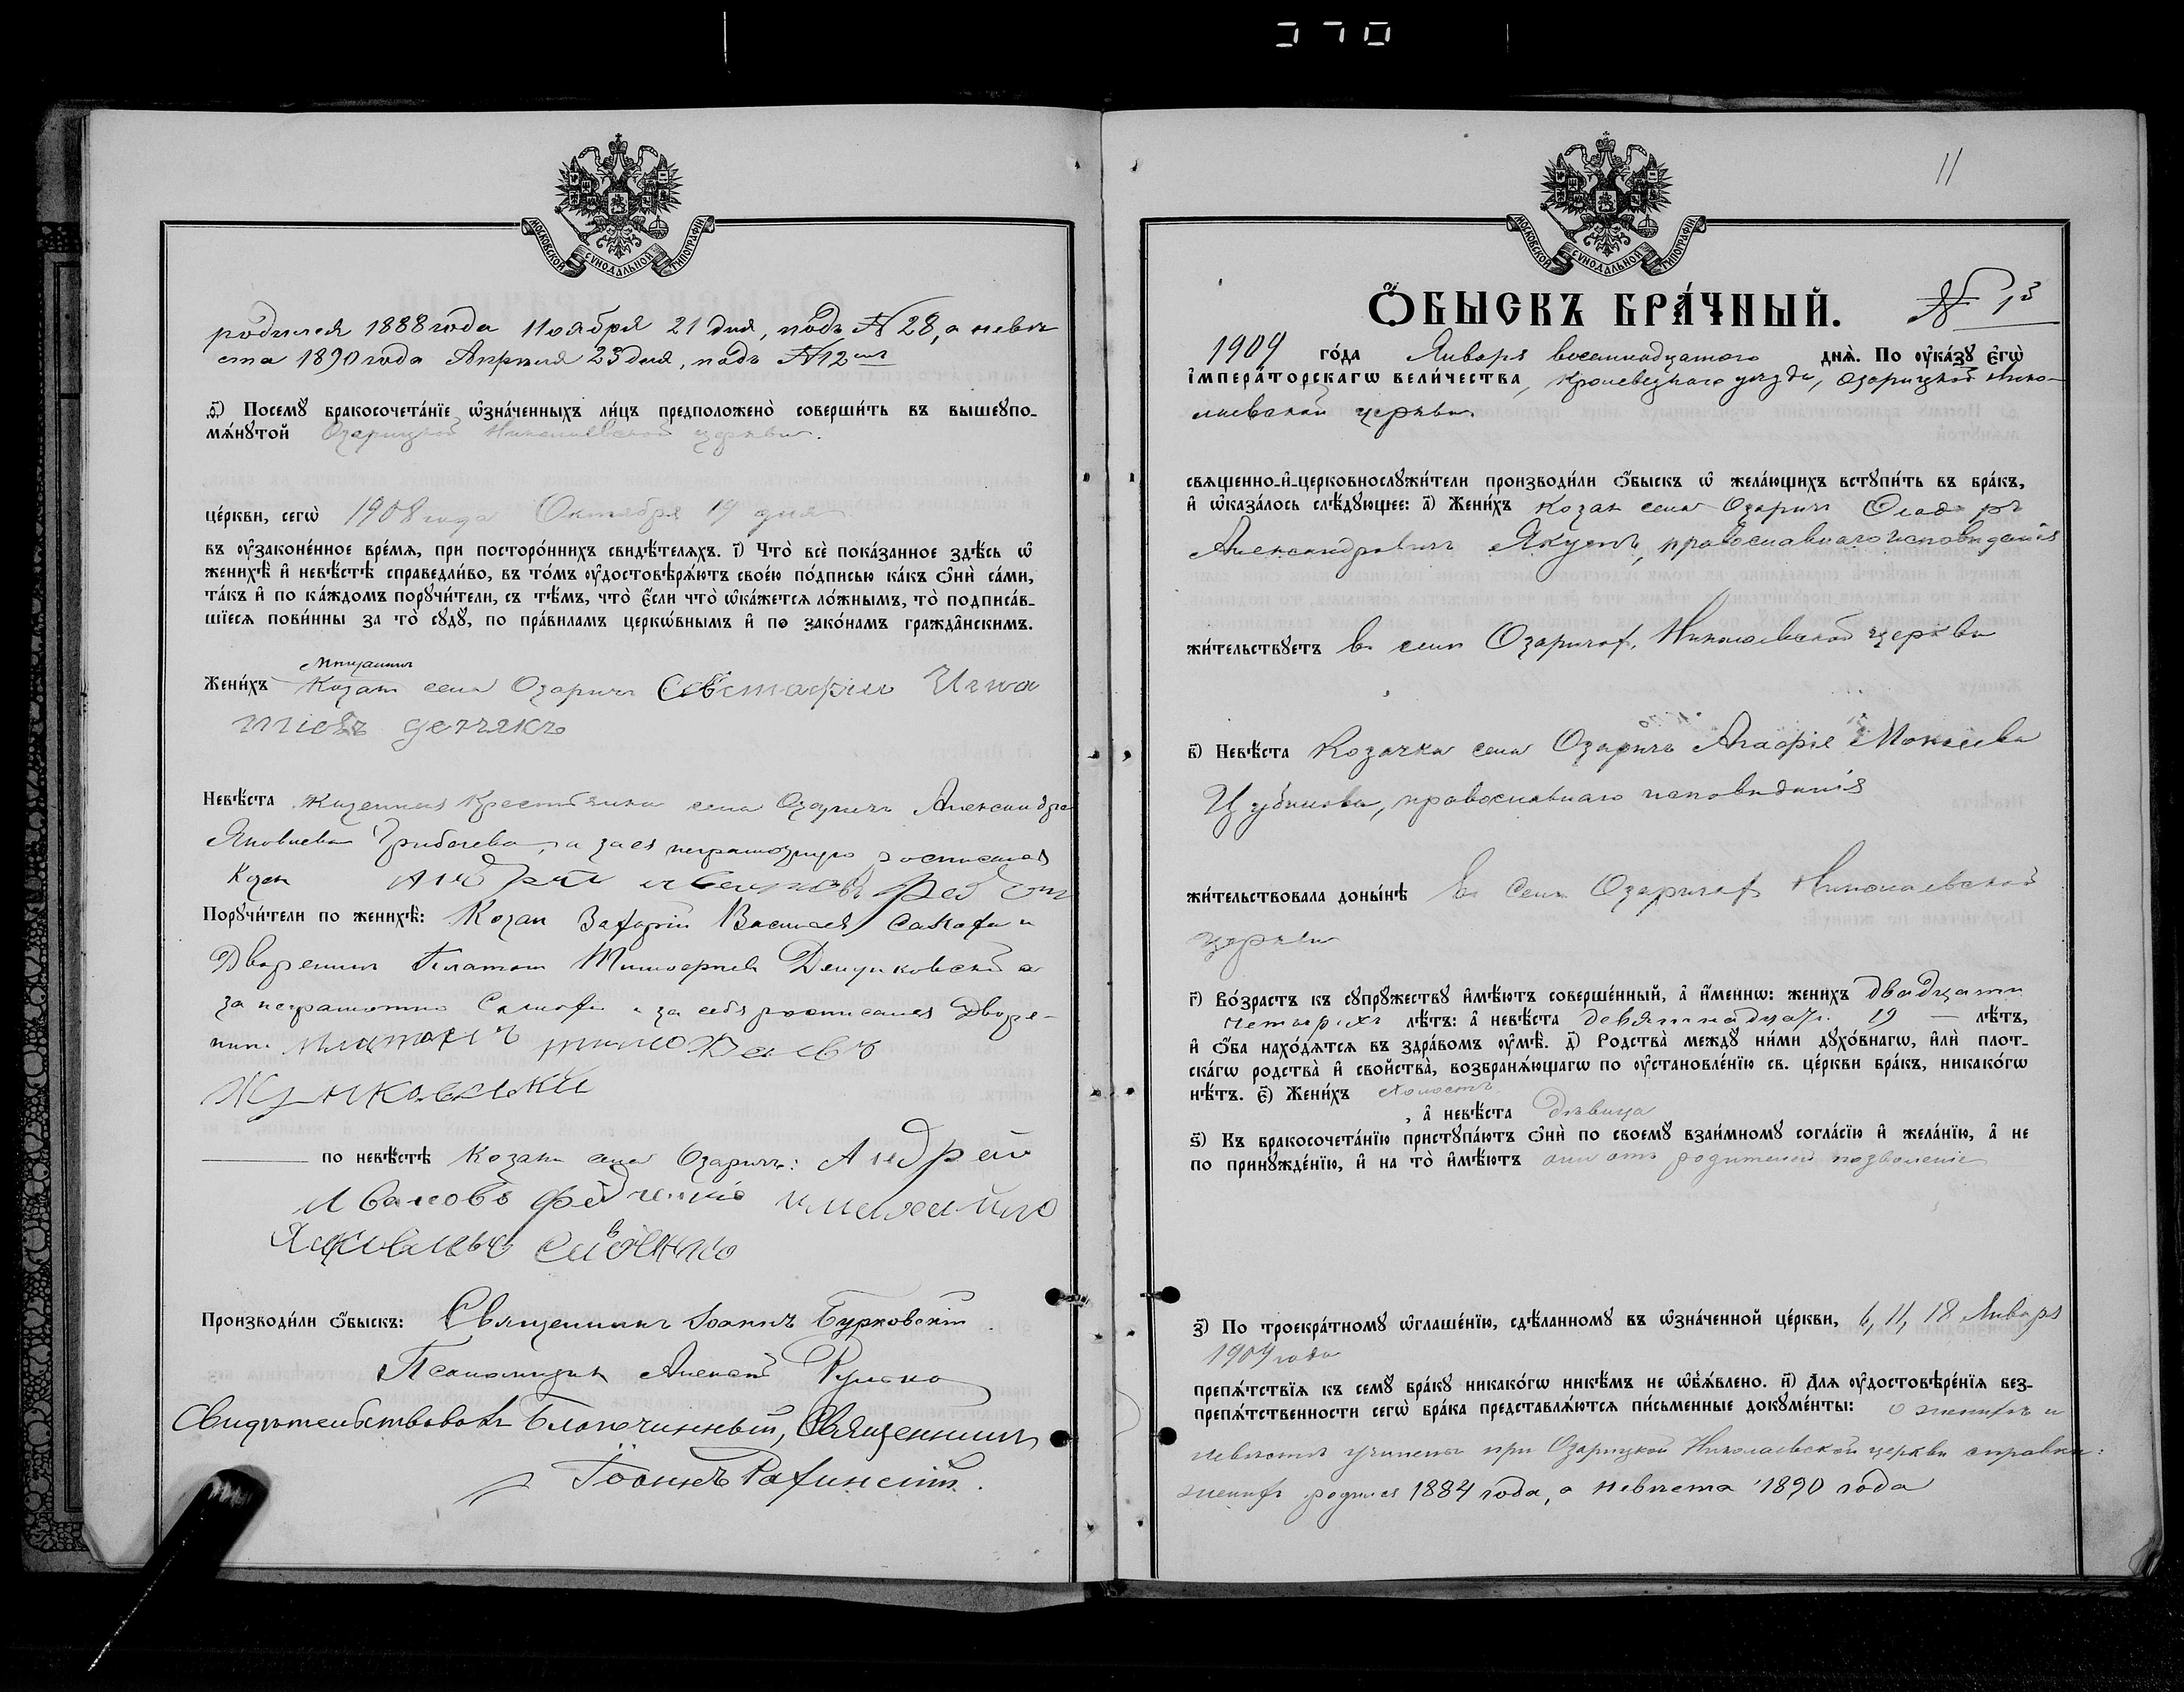 370
МОСКОВСКОЙ СѴНОДАЛЬНОЙ ТИПОГРАФІИ
родился 1888 года Ноября 21 дня, подъ № 28, а невѣ
ста 1890 года Апрѣля 23 дня, подъ № 12
ѳ҃) Посемꙋ бракосочета́нїе ѡ҆зна́ченныхъ ли́цъ предположено̀ соверши́ть въ вышеꙋпо-
мѧ́нꙋтой Озарицкой Николаевской церкви.
це́ркви, сегѡ̀ 1908 года Октября 19 дня
въ ᲂу҆законе́нное вре́мѧ, при посторо́ннихъ свидѣ́телѧхъ. і҃) Что̀ всѐ пока́занное здѣ́сь ѡ҆
женихѣ̀ и҆ невѣ́стѣ справедли́во, въ то́мъ ᲂу҆достовѣрѧ́ютъ свое́ю по́дписью ка́къ ѻ҆нѝ са́ми,
та́къ и҆ по ка́ждомъ порꙋчи́тели, съ тѣ́мъ, что̀ є҆́сли что̀ ѡ҆ка́жетсѧ ло́жнымъ, то̀ подписа́в-
шїесѧ пови́нны за то̀ сꙋдꙋ, по пра́виламъ церко́внымъ и҆ по зако́намъ гражда̂нскимъ.
Мѣщанин
Жени́хъ Козакъ села Озаричъ Євстафій Игна
тіевъ
Невѣ́ста Казенная крестьянка села Озаричъ Александра
Яковлева Грибачева, а за ея неграмотную росписался
Козак Андрей Ивановъ Фед
Порꙋчи́тели по женихѣ̀: Козак Захарій Васильев и
Дворянин Платон Тимофеев
за неграмотного и за себя росписался Дворя-
нин Платонъ Тимофеевъ
по невѣ́стѣ Козак села Озаричъ: Андрей
Ивановъ Федченко
Производи́ли ѻ҆́быскъ: Священникъ Іоаннъ Бурковскій
Псаломщик Алексѣй
Свидѣтельствовалъ Благочинный, Священникъ
Іоаннъ
11
МОСКОВСКОЙ СѴНОДАЛЬНОЙ ТИПОГРАФІИ
Ѻ҆БЫСКЪ БРА́ЧНЫЙ. № 1й
1909 го́да Января восемнадцатаго днѧ̀. По ᲂу҆ка́зꙋ є҆гѡ̀
і҆мпера́торскагѡ вели́чества, Кролевецкаго уѣзда, Озарицкой Нико-
лаевской церкви
свѧщенно-и҆-церковнослꙋжи́тели производи́ли ѻ҆́быскъ ѡ҆ жела́ющихъ встꙋпи́ть въ бра́къ,
и҆ ѡ҆каза́лось слѣ́дꙋющее: а҃) Жени́хъ Козак села Озаричъ
Александровичъ Якуш, православнаго исповѣданія
жи́тельствꙋетъ въ селѣ Озаричах, Николаевской церкви
в҃) Невѣ́ста Козачка села Озаричъ Агафія Мокіева
православнаго исповѣданія
жи́тельствовала доны́нѣ въ селѣ Озаричах Николаевской
церкви
г҃) Во́зрастъ къ сꙋпрꙋ́жествꙋ и҆мѣ́ютъ соверше́нный, а҆ и҆́меннѡ: жени́хъ двадцати
четырехъ лѣ́тъ: а҆ невѣ́ста девятнадцати 19 — лѣ́тъ,
и҆ ѻ҆́ба нахо́дѧтсѧ въ здра́вомъ ᲂу҆мѣ̀. д҃) Родства̀ междꙋ̀ ни́ми дꙋхо́внагѡ, и҆лѝ плот-
ска́гѡ родства̀ и҆ сво́йства, возбранѧ́ющагѡ по ᲂу҆становле́нїю св. це́ркви бра́къ, никако́гѡ
нѣ́тъ. є҃) Жени́хъ холостъ
, а҆ невѣ́ста дѣвица
ѕ҃) Къ бракосочета́нїю пристꙋпа́ютъ ѻ҆нѝ по своемꙋ̀ взаи́мномꙋ согла́сїю и҆ жела́нїю, а҆ не
по принꙋжде́нїю, и҆ на то̀ и҆мѣ́ютъ они отъ родителей позволеніе
з҃) По троекра́тномꙋ ѡ҆глаше́нїю, сдѣ́ланномꙋ въ ѡ҆зна́ченной це́ркви, 6, 11, 18 Января
1909 года
препѧ́тствїѧ къ семꙋ̀ бра́кꙋ никако́гѡ никѣ́мъ не ѡ҆б̾ѧ́влено. и҃) Длѧ ᲂу҆достовѣре́нїѧ без-
препѧ́тственности сегѡ̀ бра́ка представлѧ́ютсѧ пи́сьменные докꙋме́нты: о женихѣ и
невѣстѣ учинены при Озарицкой Николаевской церкви справки:
жених родился 1884 года, а невѣста 1890 года